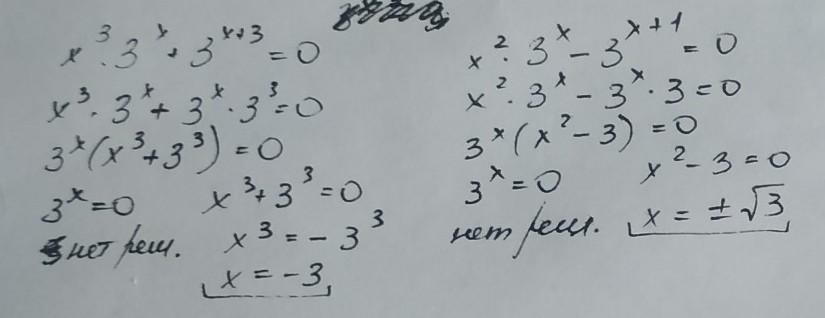 x³ · 3ˣ + 3ˣ⁺³ = 0
x³ · 3ˣ + 3ˣ · 3³ = 0
3ˣ(x³ + 3³) = 0
3ˣ = 0 x³ + 3³ = 0
нет реш. x³ = -3³
x = -3
x² · 3ˣ - 3ˣ⁺¹ = 0
x² · 3ˣ - 3ˣ · 3 = 0
3ˣ(x² - 3) = 0
3ˣ = 0 x² - 3 = 0
нет реш. x = ±√3